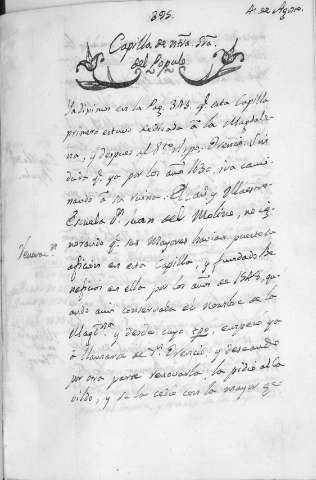 395.
4. de Agosto.
Capilla de ntra. Sra.
del Populo
Ya diximos en la Pag. 373 qe. esta Capilla
primero estuvo dedicada à la Magdale
na, y despues al Sto.
dado qe. ya por los años 1630, iva cami
nando à su ruina. El
Escuela Dn. Juan del Molino, no ig
norando qe. sus Mayores havian puesto la
aficion en esta Capilla, y fundado Be
neficios en ella por los años de 1348, qu
ando aun conservaba el nombre de la
Magna. y desde cuyo tpo. empezó ya
à llamarse de Sn. y deseando
por otra parte renovarla, la pidió al Ca
vildo, y se la cedio con la mayor ge